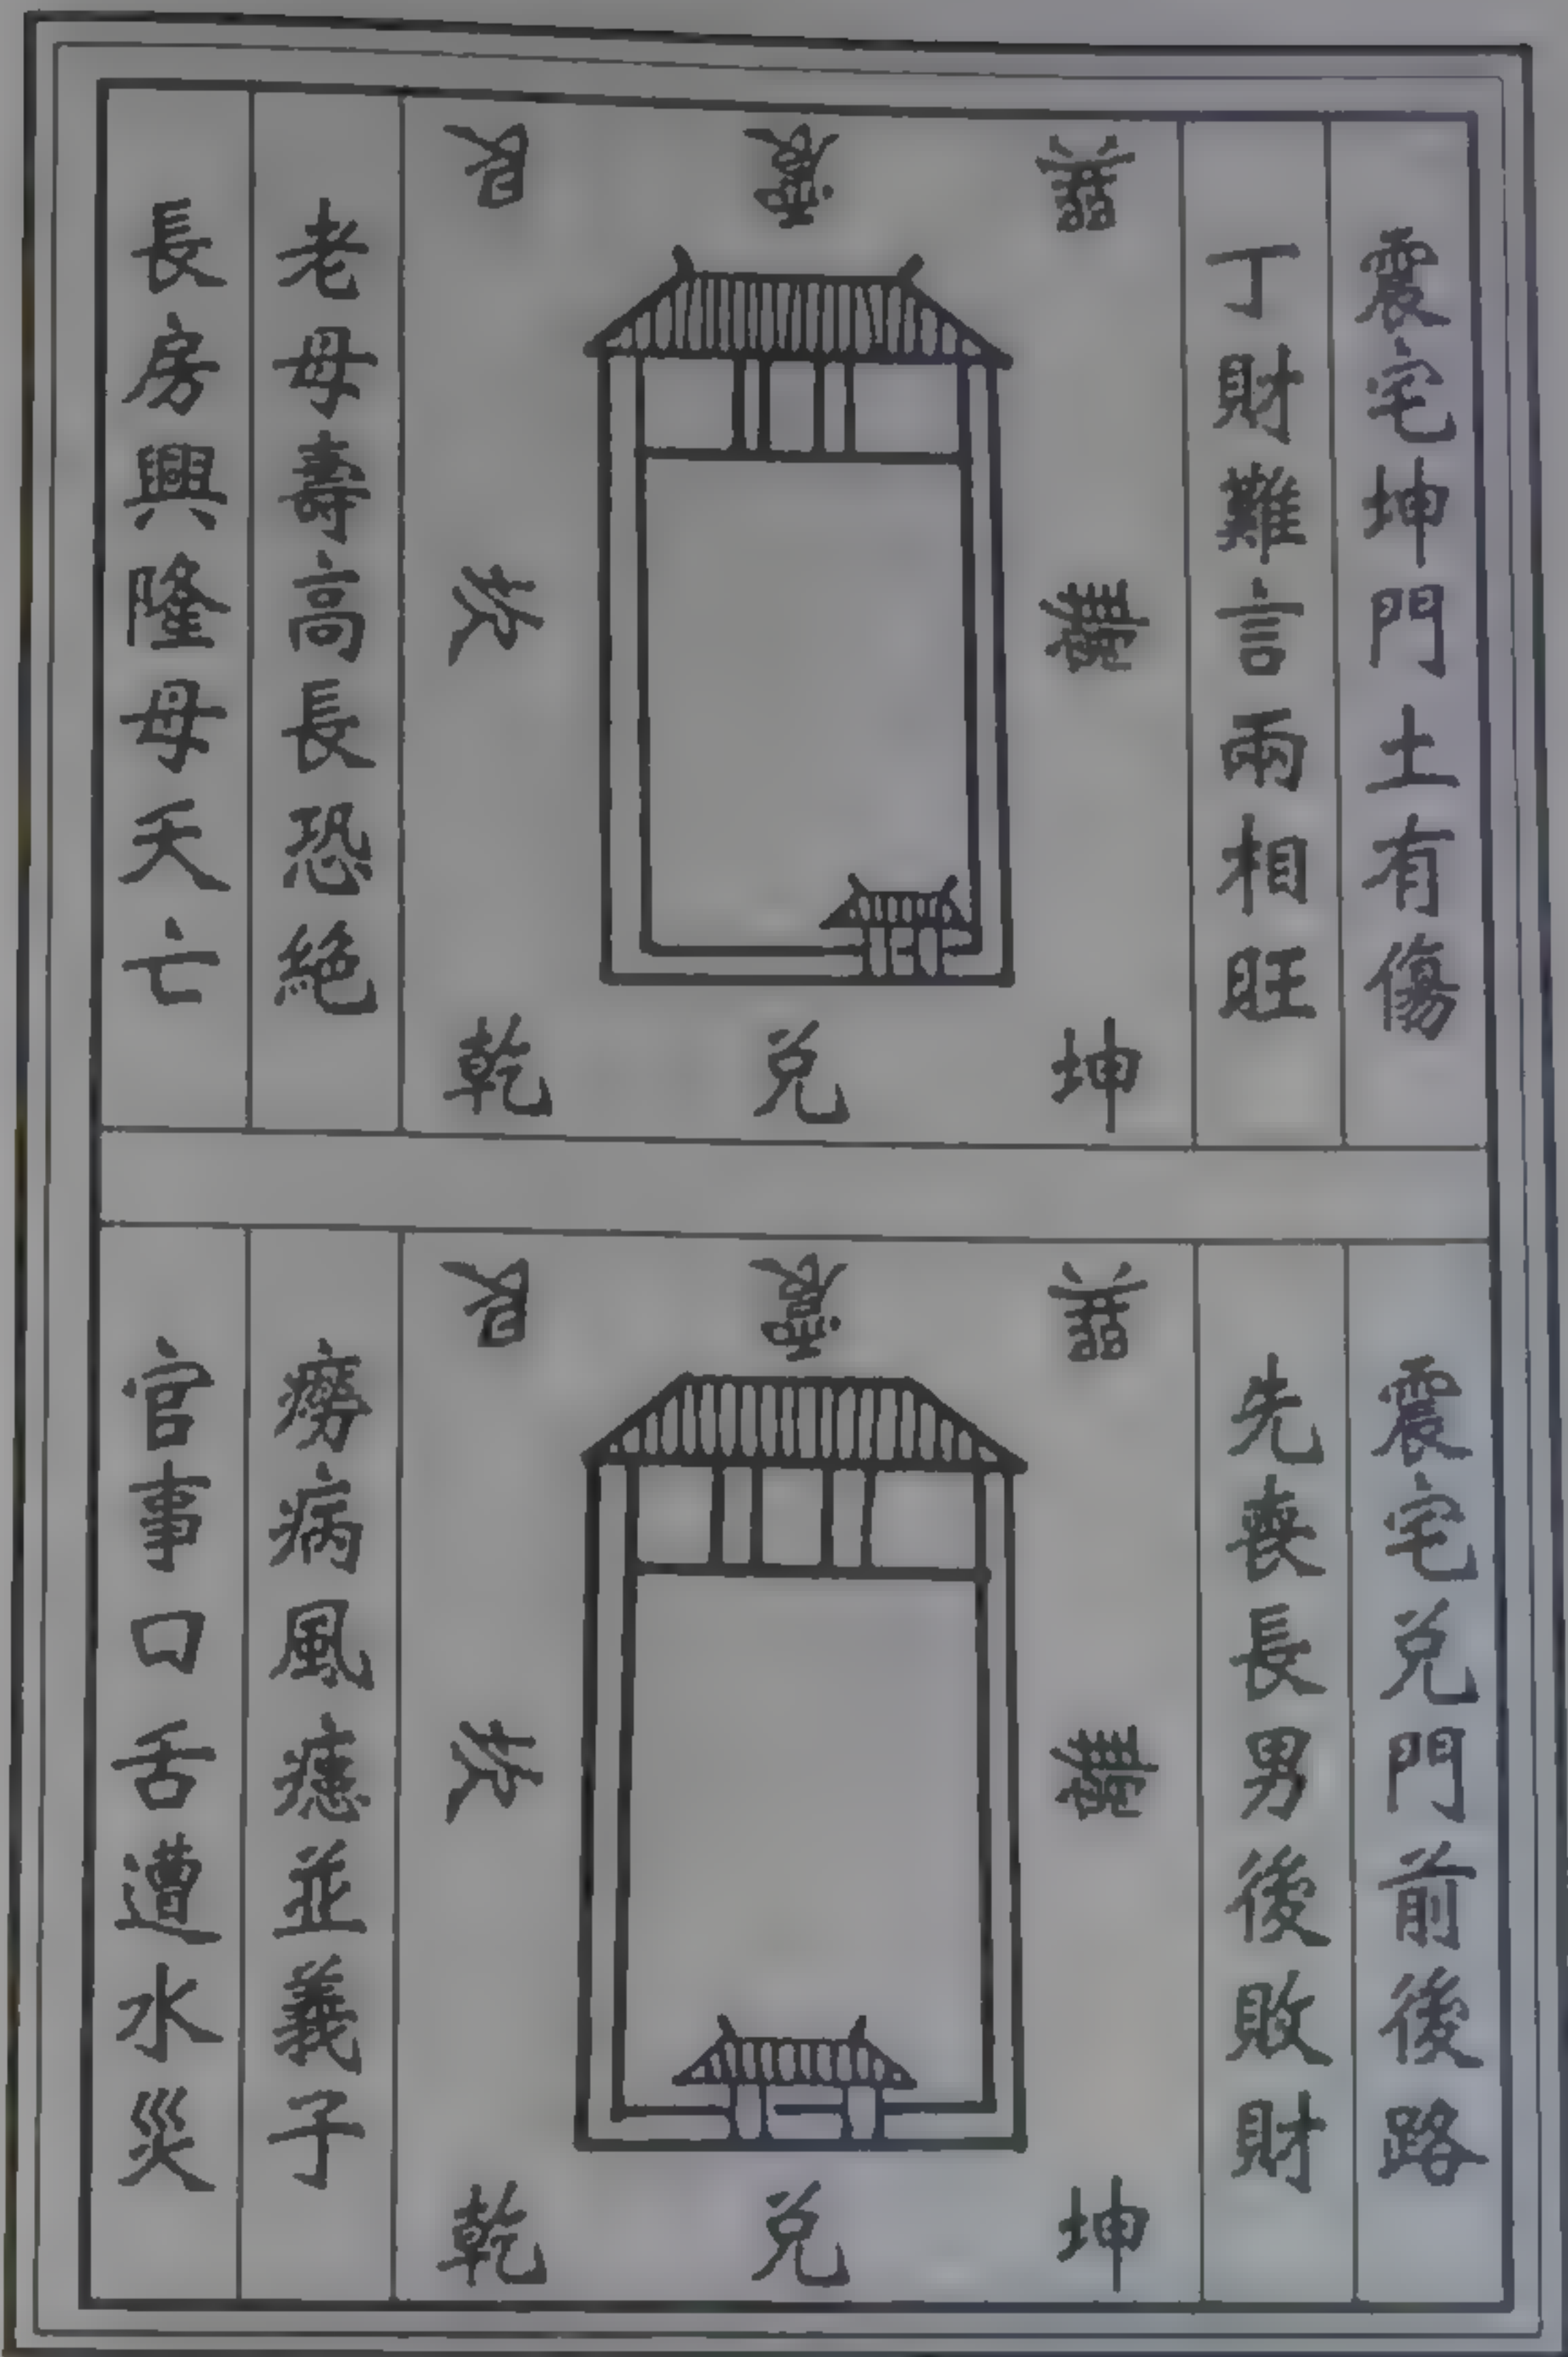 震宅坤門土有傷
丁財難言兩相旺
巽
震
艮
離
坎
坤
兑
乾
老母壽高長恐絕
長房興隆母夭亡
震宅兑門前後路
先喪長男後敗財
巽
震
艮
離
坎
坤
兑
乾
癆病風並義子
官事口舌遭水災